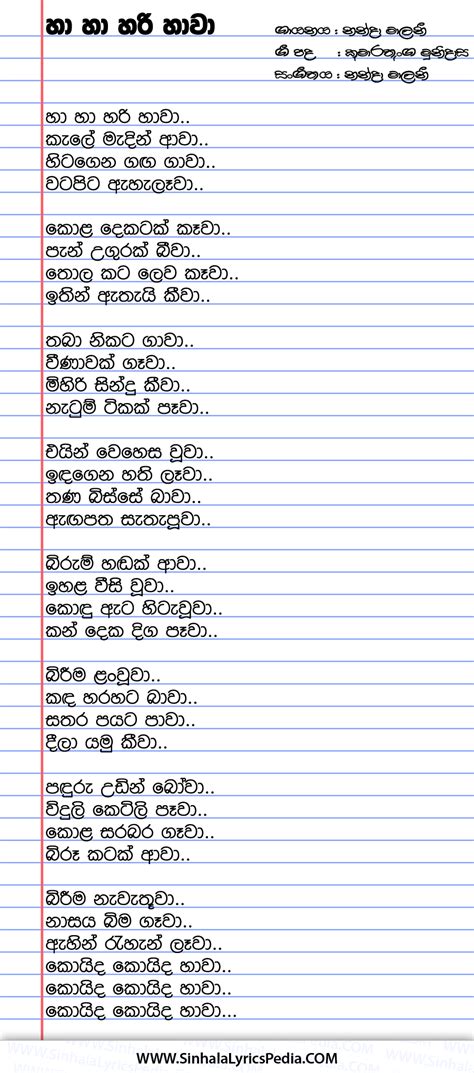 හා හා හරි හාවා
ගායනය : නන්දා මාලනී
ගී පද : කුමාරතුංග මුනිදාස
සංගීතය : නන්දා මාලනී
හා හා හරි හාවා..
කැලේ මැදින් ආවා..
හිටගෙන ගඟ ගාවා..
වටපිට ඇහැලෑවා..
කොළ දෙකටක් කෑවා..
පැන් උගුරක් බීවා..
තොල කට ලෙව කෑවා..
ඉතින් ඇතැයි කීවා..
තබා නිකට ගාවා..
වීණාවක් ගෑවා..
මිහිරි සින්දු කීවා..
නැටුම් ටිකක් පෑවා..
එයින් වෙහෙස වූවා..
ඉඳගෙන හති ලෑවා..
තණ බිස්සේ බාවා..
ඇඟපත සැතැපූවා..
බිරුම් හඬක් ආවා..
ඉහළ වීසි වූවා..
කොඳු ඇට හිටැවූවා..
කන් දෙක දිග පෑවා..
බිරීම ළංවූවා..
කඳ හරහට බාවා..
සතර පයට පාවා..
දීලා යමු කීවා..
පඳුරු උඩින් බෝවා..
විදුලි කෙටිලි පෑවා..
කොළ සරබර ගෑවා..
බිරූ කටක් ආවා..
බිරීම නැවැතූවා..
නාසය බිම ගෑවා..
ඇහින් රැහැන් ලෑවා..
කොයිද කොයිද හාවා..
කොයිද කොයිද හාවා..
කොයිද කොයිද හාවා...
www.SinhalaLyricsPedia.COM